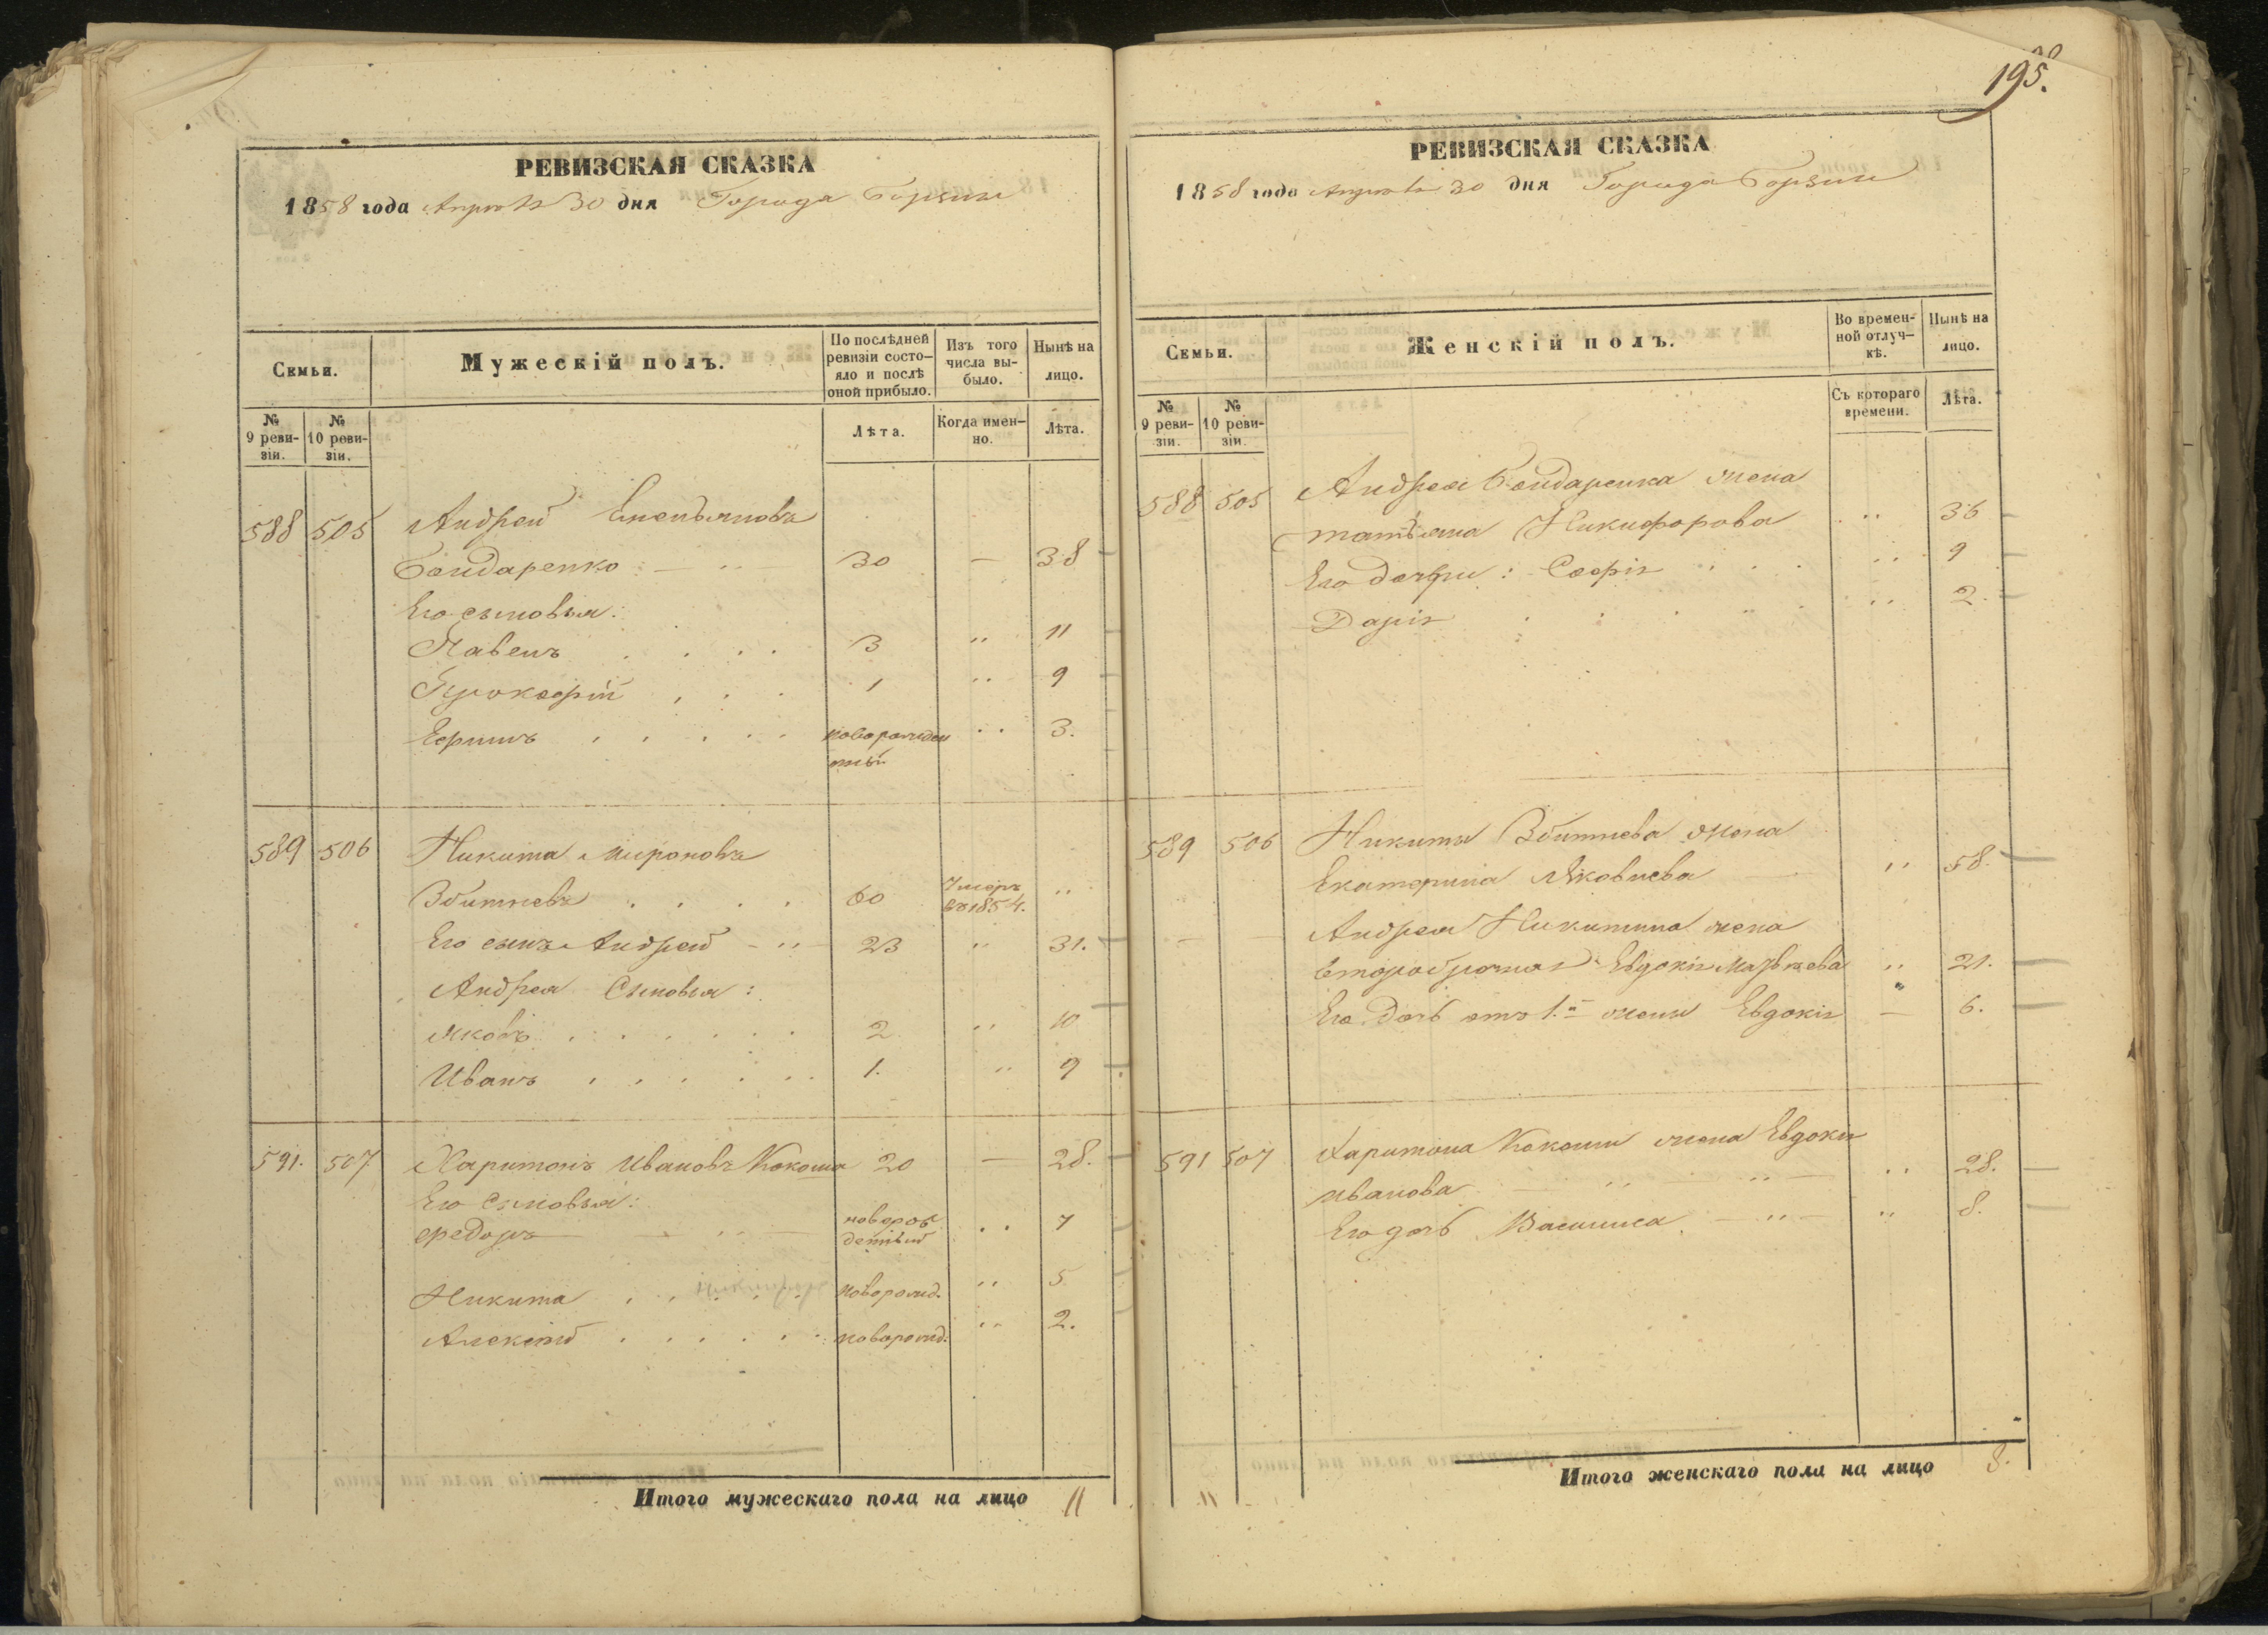 РЕВИЗСКАЯ СКАЗКА
1858 года Апрѣля 30 дня Города Борзны
Семьи.
Мужескій полъ.
По послѣдней ревизіи состо-
яло и послѣ
оной прибыло.
Изъ того
числа вы-
было.
Нынѣ на
лицо.
№
9 реви-
зіи.
№
10 реви-
зіи.
Лѣта.
Когда имен-
но.
Лѣта.
588 505 Андрей Емельяновъ
Бондаренко — " — 30 — 38
Его сыновья:
Павелъ . . . . 3 " 11
Прокофій . . . 1 " 9
Ефимъ . . . . . новорожден " 3.
ный
589 506 Никита Мироновъ
Збитневъ . . . . 60 Умеръ въ 1854. "
Его сынъ Андрей — " — 23 " 31.
Андрея Сыновья:
Яковъ . . . . . . 2 " 10
Иванъ . . . . . . 1. " 9
591. 507 Харитонъ Ивановъ Кокоша 20 — 28.
Его сыновья:
Федоръ — " — новорож
денный " 7
Никита . . . . . новорожд. " 5
Алексѣй . . . . . . новорожд. " 2.
Итого мужескаго пола на лицо 11
195.
РЕВИЗСКАЯ СКАЗКА
1858 года Апрѣля 30 дня Города Борзны
Семьи.
Женскій полъ.
Во времен-
ной отлуч-
кѣ.
Нынѣ на
лицо.
№
9 реви-
зіи.
№
10 реви-
зіи.
Съ котораго
времени.
Лѣта.
588 505 Андрея Бондаренка жена
татьяна Никифорова " 36
Его дочери: Софія . . . " 9
Дарія . . " . " 2.
589 506 Никиты Збитнева жена
Екатерина Яковлева — " 58.
— — Андрея Никитина жена
второбрачная Евдокія " 21.
Его дочь отъ 1.й жены Евдокія — 6.
591 507 Харитона Кокоши жена Евдокія
Иванова — " — " — " 28.
Его дочь Василиса — " — " 8.
Итого женскаго пола на лицо 8.